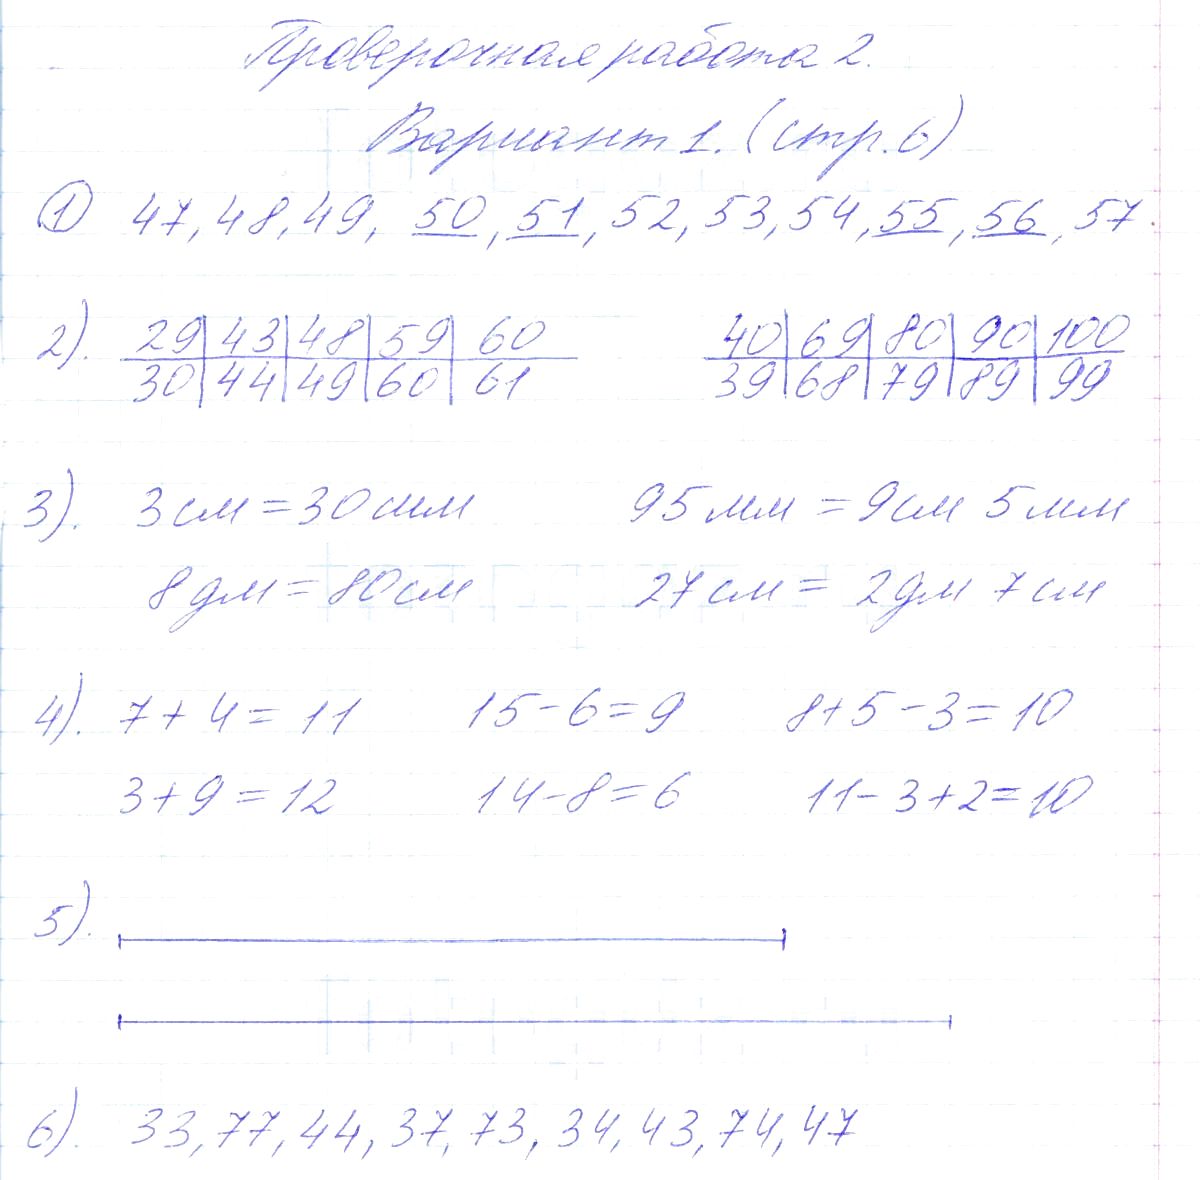 Проверочная работа 2.
Вариант 1. (стр. 6)
1) 47, 48, 49, 50, 51, 52, 53, 54, 55, 56, 57.
2). 29 | 43 | 48 | 59 | 60 40 | 69 | 80 | 90 | 100
30 | 44 | 49 | 60 | 61 39 | 68 | 79 | 89 | 99
3). 3 см = 30 мм 95 мм = 9 см 5 мм
8 дм = 80 см 27 см = 2 дм 7 см
4). 7 + 4 = 11 15 - 6 = 9 8 + 5 - 3 = 10
3 + 9 = 12 14 - 8 = 6 11 - 3 + 2 = 10
5).
6). 33, 77, 44, 37, 73, 34, 43, 74, 47